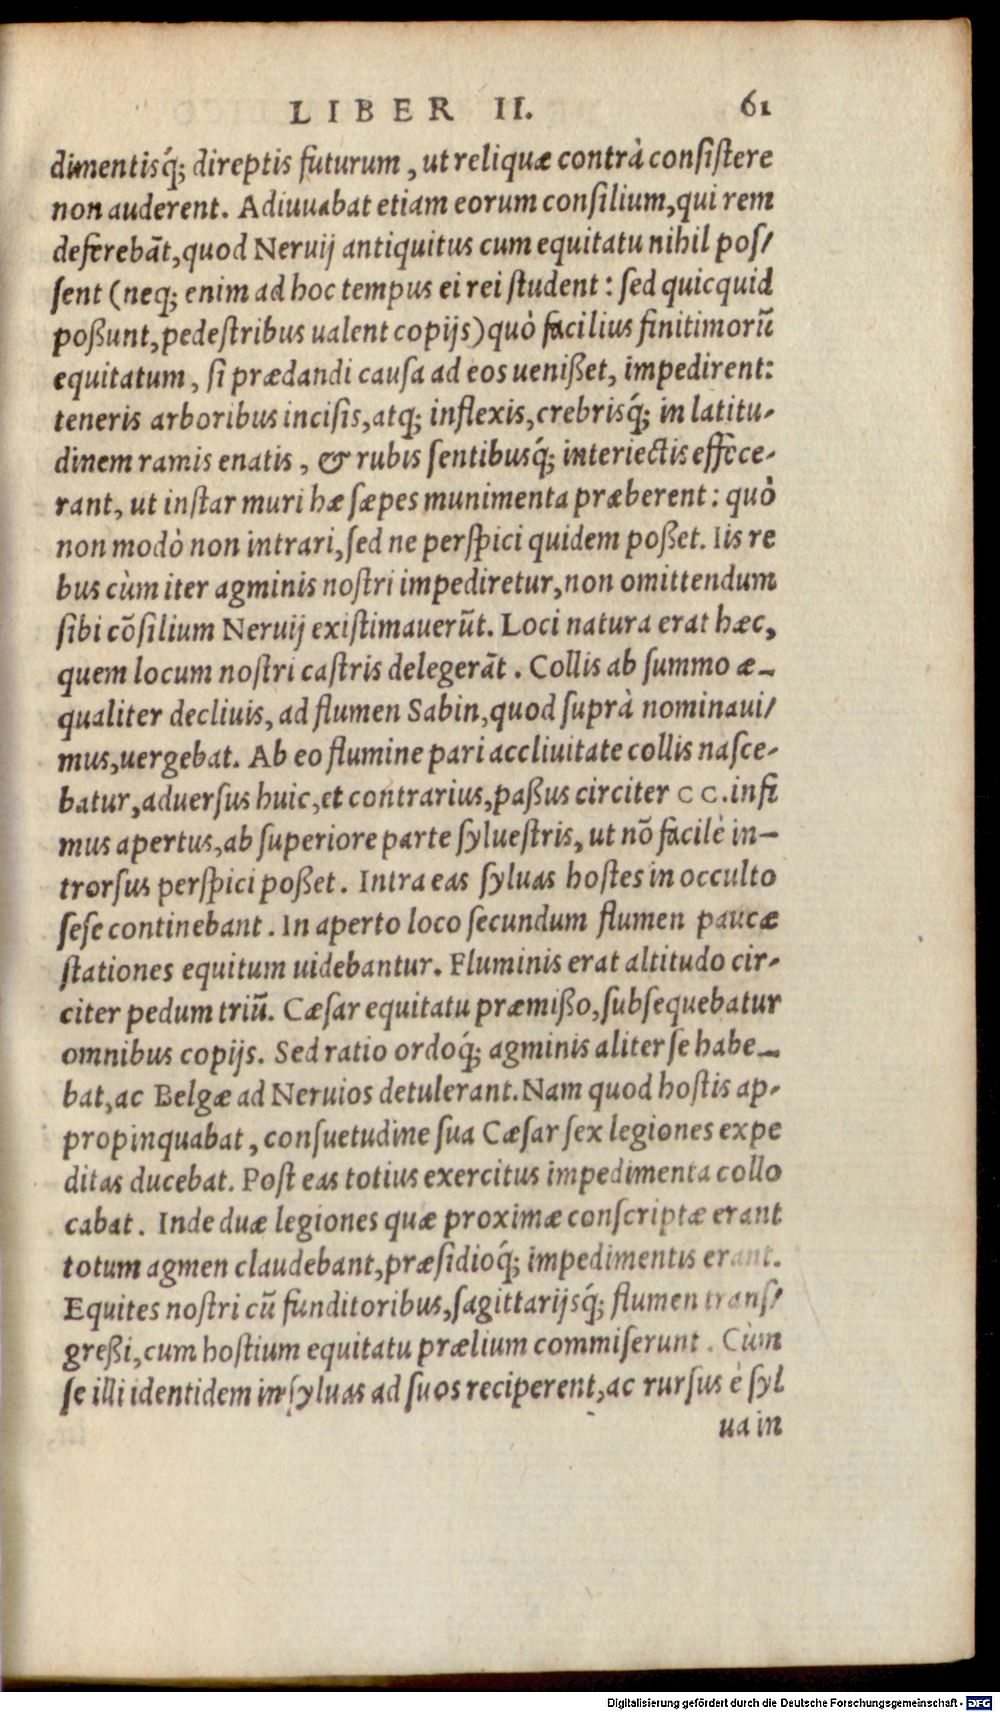 LIBER II. 61
dimentisq́; direptis futurum, ut reliquæ contrà consiſtere
non auderent. Adiuuabat etiam eorum consilium, qui rem
deferebãt, quod Neruij antiquitus cum equitatu nihil poſ/
ſent (neq; enim ad hoc tempus ei rei ſtudent: ſed quicquid
poßunt, pedeſtribus ualent copijs) quò facilius finitimorũ
equitatum, ſi prædandi cauſa ad eos uenißet, impedirent:
teneris arboribus inciſis, atq; inflexis, crebrisq́; in latitu-
dinem ramis enatis, & rubis ſentibusq́; interiectis effece-
rant, ut inſtar muri hæ ſæpes munimenta præberent: quò
non modò non intrari, ſed ne perſpici quidem poßet. Iis re
bus cùm iter agminis noſtri impediretur, non omittendum
ſibi cõſilium Neruij exiſtimauerũt. Loci natura erat hæc,
quem locum noſtri caſtris delegerãt. Collis ab ſummo æ-
qualiter decliuis, ad flumen Sabin, quod ſuprà nominaui/
mus, uergebat. Ab eo flumine pari accliuitate collis naſce-
batur, aduerſus huic, et contrarius, paßus circiter CC. infi
mus apertus, ab ſuperiore parte ſylueſtris, ut nõ facilè in-
trorſus perſpici poßet. Intra eas ſyluas hoſtes in occulto
ſeſe continebant. In aperto loco ſecundum flumen paucæ
ſtationes equitum uidebantur. Fluminis erat altitudo cir-
citer pedum triũ. Cæſar equitatu præmißo, ſubſequebatur
omnibus copijs. Sed ratio ordoq́; agminis aliter ſe habe-
bat, ac Belgæ ad Neruios detulerant. Nam quod hoſtis ap-
propinquabat, conſuetudine ſua Cæſar ſex legiones expe
ditas ducebat. Poſt eas totius exercitus impedimenta collo
cabat. Inde duæ legiones quæ proximæ conſcriptæ erant
totum agmen claudebant, præſidioq́; impedimentis erant.
Equites noſtri cũ funditoribus, ſagittarijsq́; flumen tranſ/
greßi, cum hoſtium equitatu prælium commiſerunt. Cùm
ſe illi identidem in ſyluas ad ſuos reciperent, ac rurſus è ſyl
ua in
Digitalisierung gefördert durch die Deutsche Forschungsgemeinschaft - DFG